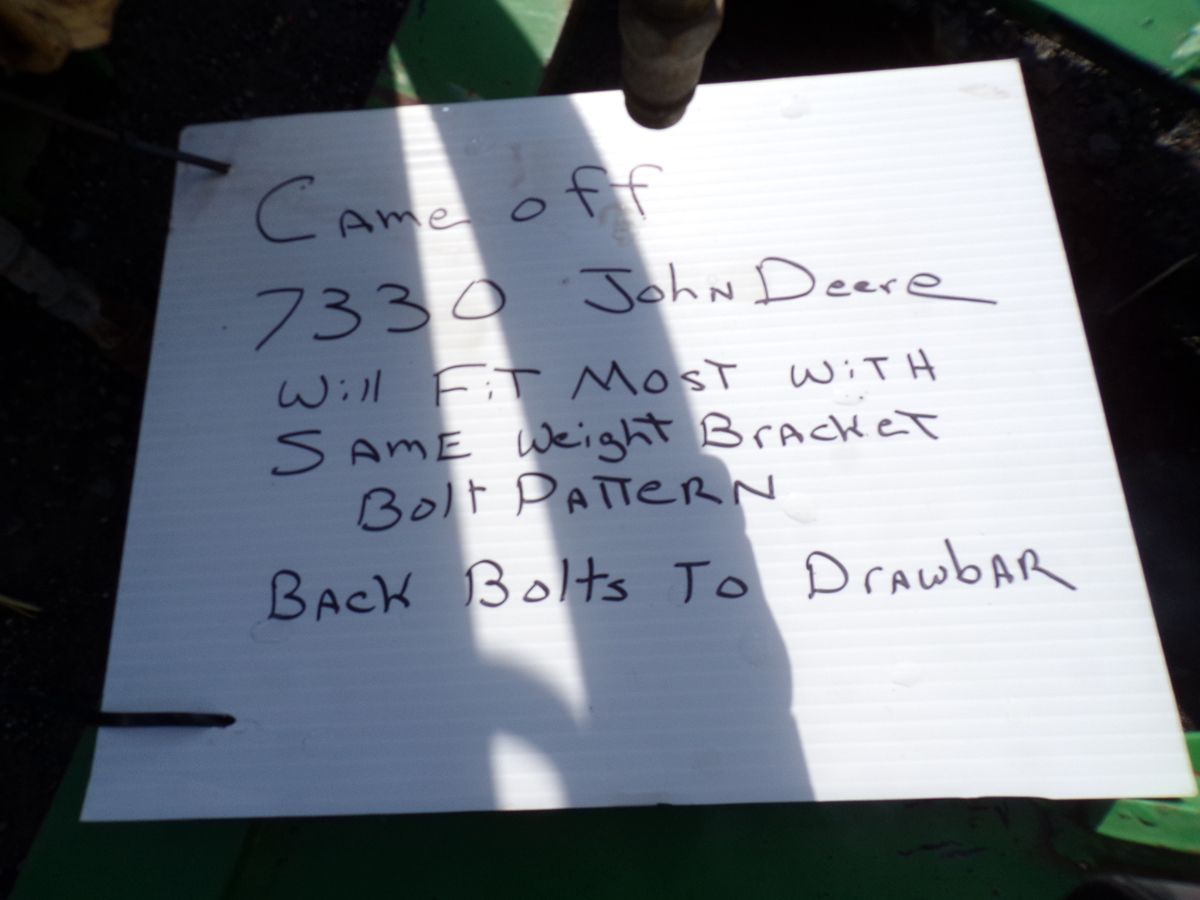 Came off
7330 John Deere
Will Fit Most With
Same Weight Bracket
Bolt Pattern
Back Bolts To Drawbar